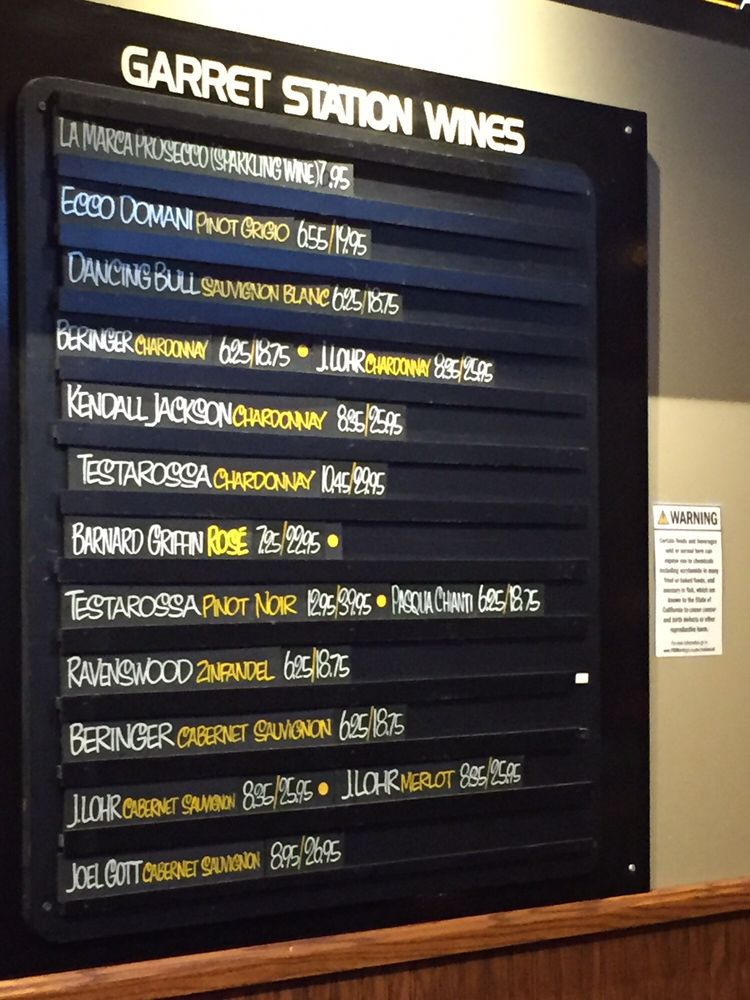 GARRET STATION WINES
LA MARCA PROSECCO (SPARKLING WINE) 7.95
ECCO DOMANI PINOT GRIGIO 6.55/19.95
DANCING BULL SAUVIGNON BLANC 6.25/18.75
BERINGER CHARDONNAY 6.25/18.75 • J.LOHR CHARDONNAY 8.95/25.95
KENDALL JACKSON CHARDONNAY 8.95/25.95
TESTAROSSA CHARDONNAY 10.45/29.95
BARNARD GRIFFIN ROSÉ 7.25/22.95 •
TESTAROSSA PINOT NOIR 12.95/39.95 • PASQUA CHIANTI 6.25/18.75
RAVENSWOOD ZINFANDEL 6.25/18.75
BERINGER CABERNET SAUVIGNON 6.25/18.75
J.LOHR CABERNET SAUVIGNON 8.95/25.95 • J.LOHR MERLOT 8.95/25.95
JOEL GOTT CABERNET SAUVIGNON 8.95/26.95
WARNING
Certain foods and beverages
sold or served here can
expose you to chemicals
including acrylamide in many
fried or baked foods, and
mercury in fish, which are
known to the State of
California to cause cancer
and birth defects or other
reproductive harm.